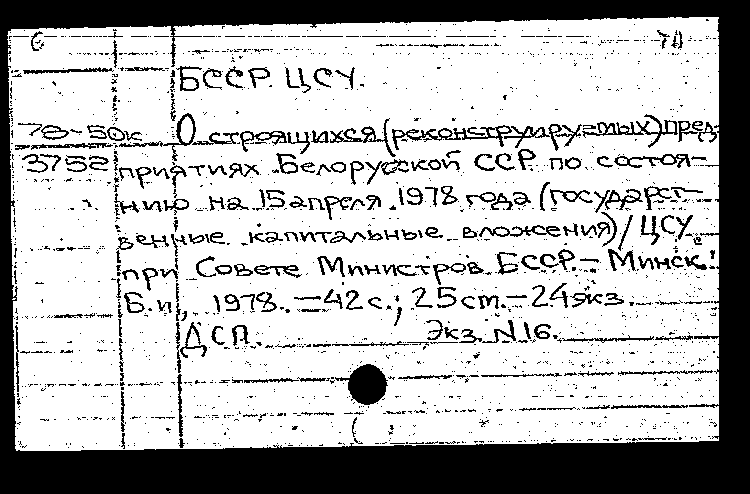 БССР. ЦСУ.
78-50к О строящихся (реконструируемых) пред-
3752 приятиях Белорусской ССР по состоя-
нию на 15 апреля 1978 года (государст-
венные капитальные вложения) / ЦСУ
при Совете Министров БССР. – Минск:
Б.и., 1978. – 42 с.; 25 ст. – 24 экз.
ДСП. Экз. N16.